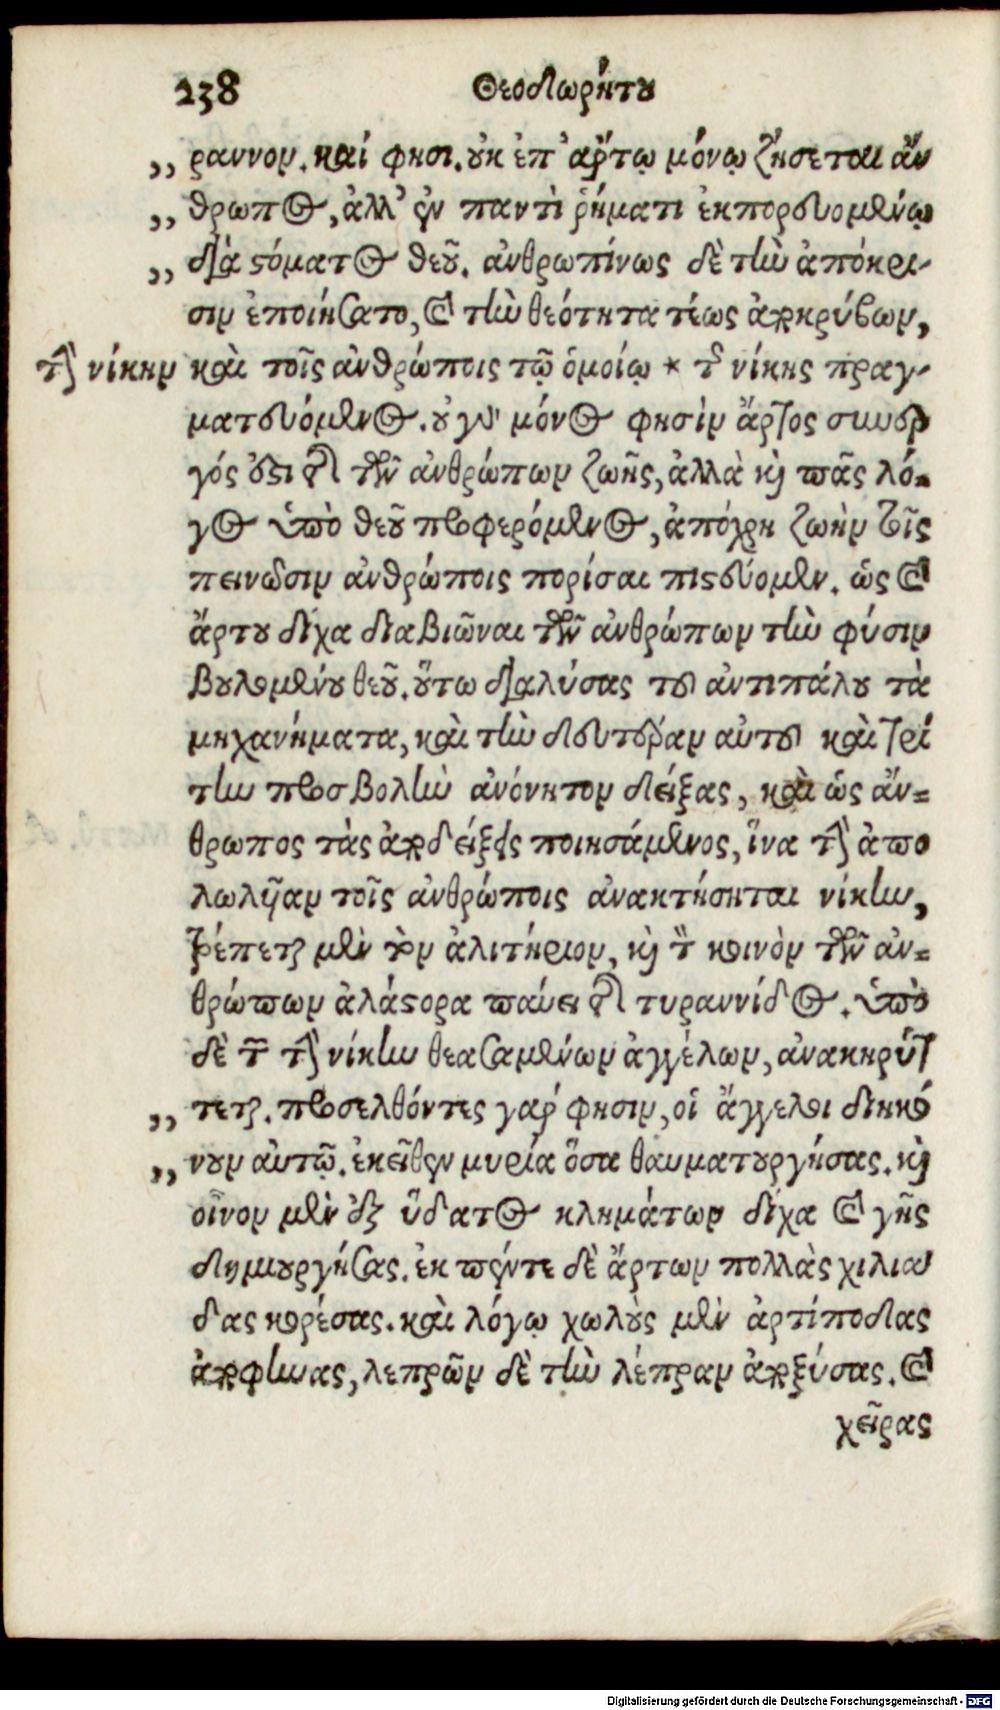 238 Θεοδωρήτου
,, ραννον. καί φησι. οὐκ ἐπ᾽ ἄρτῳ μόνῳ ζήσεται ἄν
,, θρωπος, ἀλλ᾽ ἐν παντὶ ῥήματι ἐκπορευομένῳ
,, διὰ στόματος θεοῦ. ἀνθρωπίνως δὲ τὴν ἀπόκρι-
σιν ἐποιήσατο, καὶ τὴν θεότητα τέως ἀποκρύβων,
τὴν νίκην καὶ τοῖς ἀνθρώποις τῷ ὁμοίῳ * τῆς νίκης πραγ-
ματευόμενος. οὐ γὰρ μόνος φησὶν ἄρτος συνερ
γός ἐστι τῆς τῶν ἀνθρώπων ζωῆς, ἀλλὰ καὶ πᾶς λό-
γος ὑπὸ θεοῦ προφερόμενος, ἀπόχρη ζωὴν τοῖς
πεινῶσιν ἀνθρώποις πορίσαι πιστεύομεν. ὡς καὶ
ἄρτου δίχα διαβιῶναι τῶν ἀνθρώπων τὴν φύσιν
βουλομένου θεοῦ. οὕτω διαλύσας τοῦ ἀντιπάλου τὰ
μηχανήματα, καὶ τὴν δευτέραν αὐτοῦ καὶ τρί
την προσβολὴν ἀνόνητον δείξας, καὶ ὡς ἄν-
θρωπος τὰς ἀποδείξεις ποιησάμενος, ἵνα τὴν ἀπο
λωλυῖαν τοῖς ἀνθρώποις ἀνακτήσηται νίκην,
τρέπεται μὲν τὸν ἀλιτήριον, καὶ τὸν κοινὸν τῶν ἀν-
θρώπων ἀλάστορα παύει τῆς τυραννίδος. ὑπὸ
δὲ τῶν τὴν νίκην θεασαμένων ἀγγέλων, ἀνακηρύτ
,, τεται. προσελθόντες γάρ φησιν, οἱ ἄγγελοι διηκό
,, νουν αὐτῷ. ἐκεῖθεν μυρία ὅσα θαυματουργήσας. καὶ
οἶνον μὲν ἐξ ὕδατος κλημάτων δίχα καὶ γῆς
δημιουργήσας. ἐκ πέντε δὲ ἄρτων πολλὰς χιλιά
δας κορέσας. καὶ λόγῳ χωλοὺς μὲν ἀρτίποδας
ἀποφήνας, λεπρῶν δὲ τὴν λέπραν ἀποξύσας. καὶ
χεῖρας
Digitalisierung gefördert durch die Deutsche Forschungsgemeinschaft - DFG